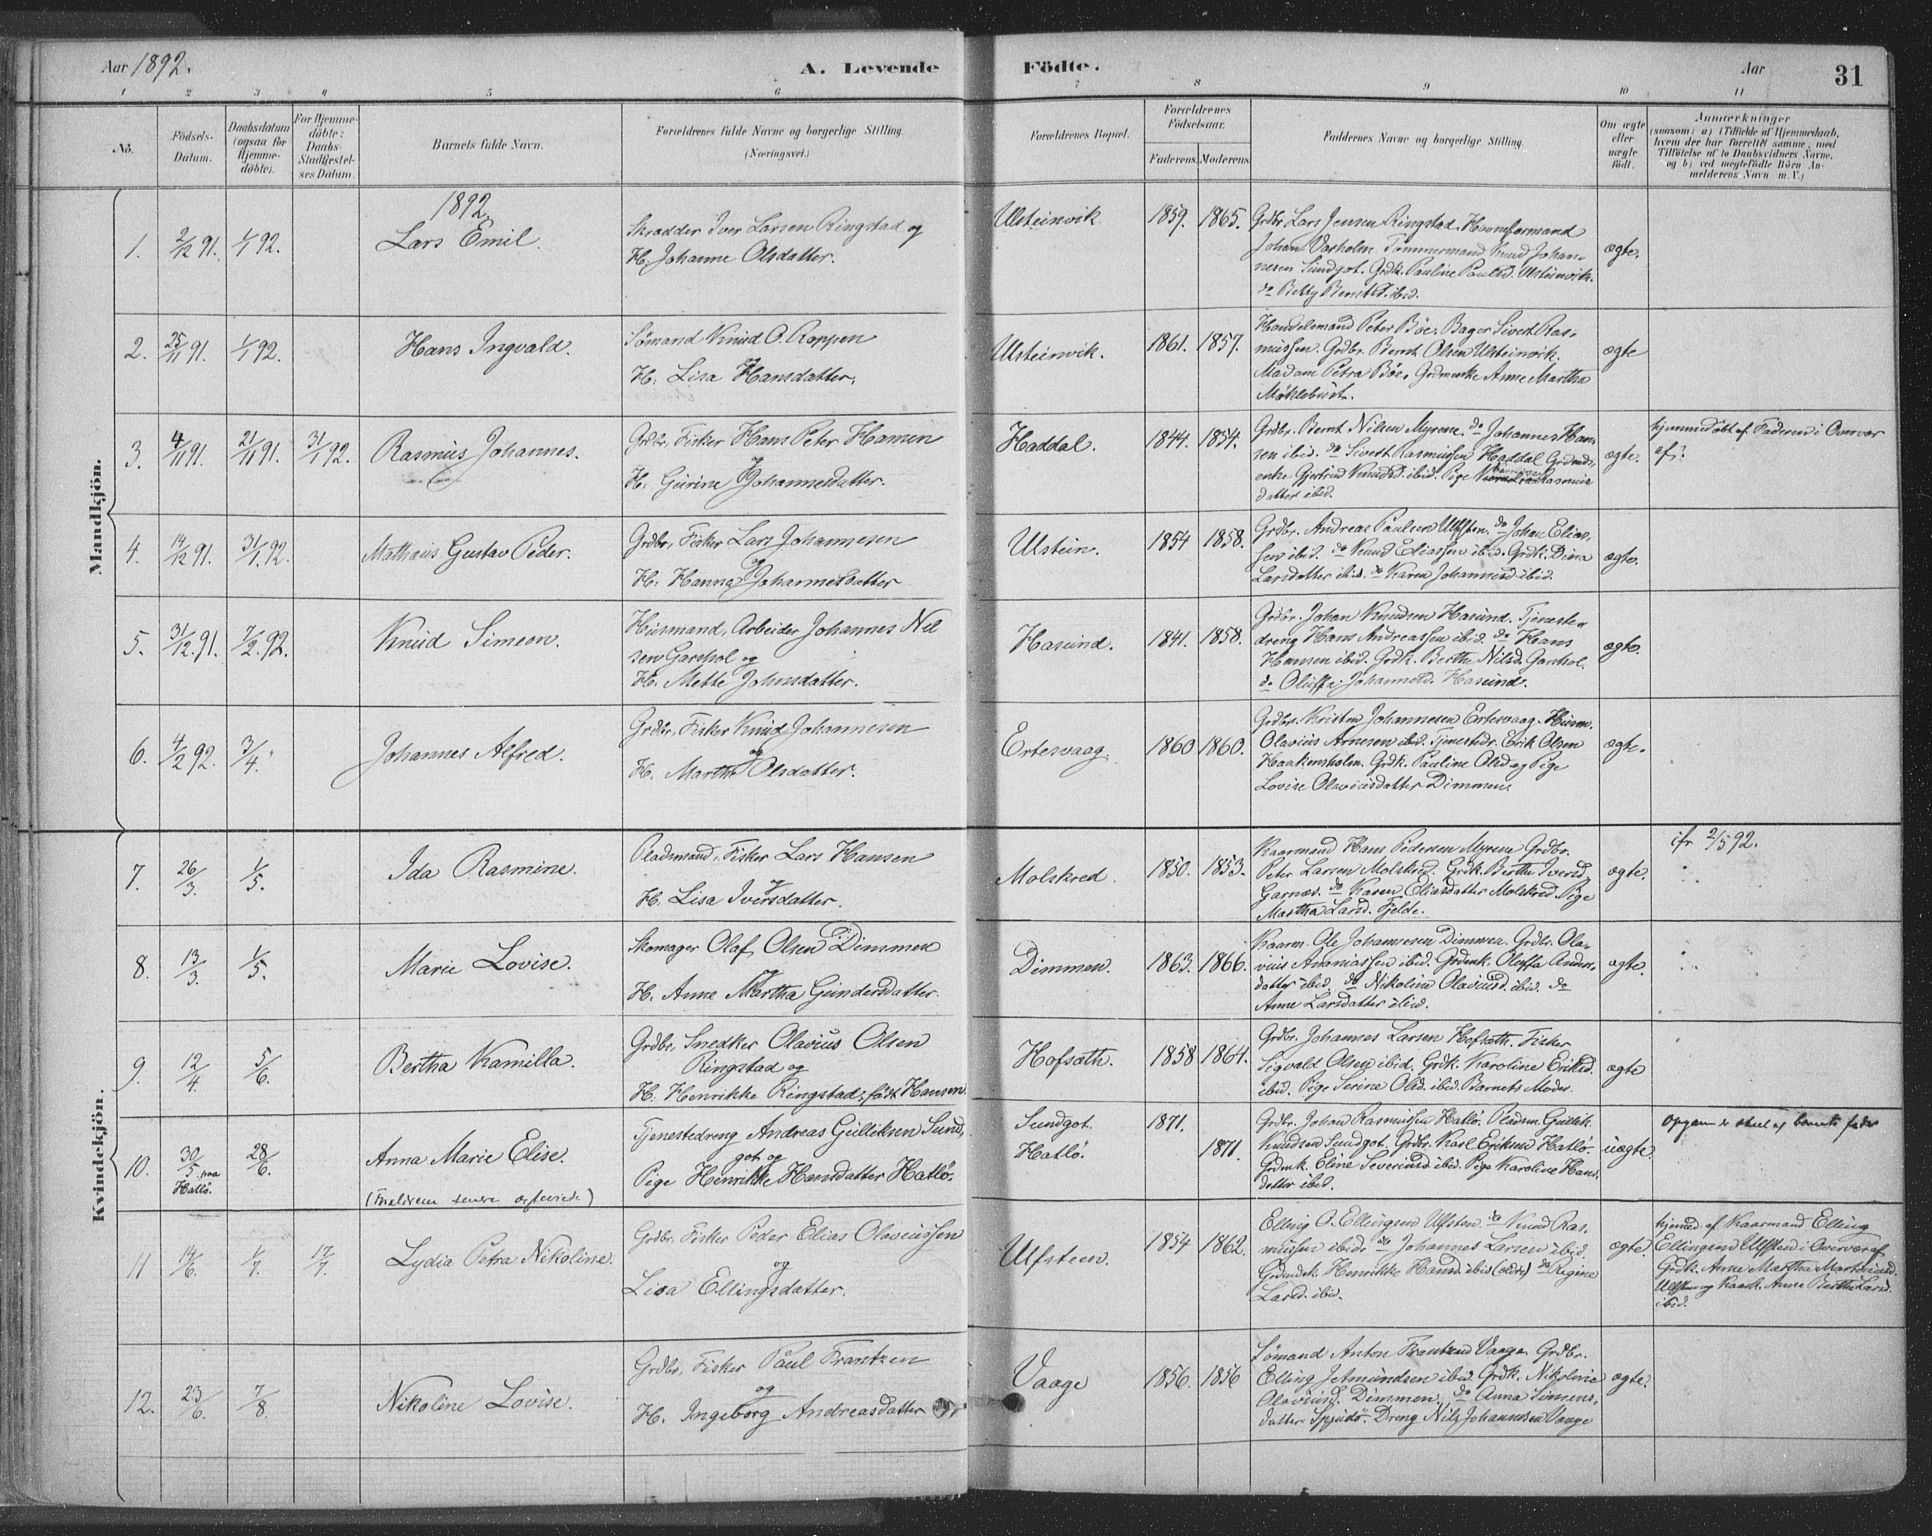 Aar 1892.
A. Levende Födte.
Aar
31
1 2 3 4 5 6 7 8 9 10 11
No.
Födsels-
Datum.
Daabsdatum
(ogsaa for
Hjemme-
döbte).
For Hjemme-
döbte:
Daabs-
Stadfæstel-
ses Datum.
Barnets fulde Navn.
Forældrenes fulde Navne og borgerlige Stilling.
(Næringsvei.)
Forældrenes Bopæl.
Forældrenes
Födselsaar.
Faderens. Moderens.
Faddernes Navne og borgerlige Stilling.
Om ægte
eller
uægte
födt.
Anmærkninger
(saasom: a) i Tilfælde af Hjemmedaab,
hvem der har forrettet samme, med
Tilföielse af to Daabsvidners Navne,
og b) ved uægtefödte Börn An-
melderens Navn m. V.)
Mandkjön.
1892
1. 2/12 91. 1/1 92.
Lars Emil.
Skrædder Iver Larsen Ringstad og
H. Johanne Olsdatter.
Ulsteinvik 1859. 1865.
Grdbr. Lars Jensen Ringstad. Havneformand
Johan Vaxholm. Tømmermand Knud Johan-
nesen Sundgot. Grdk. Pauline Paulsd. Ulsteinvik.
do Betty Berntsd. ibid.
ægte.
2. 25/11 91. 1/1 92.
Hans Ingvald.
Sømand Knud O. Roppen
og
H. Lisa Hansdatter.
Ulsteinvik. 1861. 1857.
Handelsmand Peter Böe. Bager Sivert Ras-
mussen. Grdbr. Bernt Olsen Ulsteinvik.
Madam Petra Böe. Grdmenke Anne Martha
Möklebust.
ægte
3. 4/11 91. 21/11 91. 31/1 92.
Rasmus Johannes.
Grdbr. Fisker Hans Peter Hansen
og
H. Gurine Johannesdatter.
Haddal. 1844. 1854.
Grdbr. Bernt Nilsen Myrene. do Johannes Han-
sen ibid. do Sivert Rasmussen Haddal Grdmds.
enke Gjertrud Knudsd. ibid. Pige Rasmus
datter ibid.
ægte.
hjemmedöbt af Faderen i Overvær
af?
4. 14/12 91. 31/1 92.
Mathias Gustav Peder.
Grdbr. Fisker Lars Johannesen
og
H. Hanna Johannesdatter
Ulstein. 1854 1858.
Grdbr. Andreas Paulsen Ulfsten. do Johan Elias-
sen ibid. do Knud Eliassen ibid. Grdk. Dina
Larsdatter ibid. do Karen Johannesd. ibid.
ægte.
5. 31/12 91. 7/2 92.
Knud Simeon.
Husmand, Arbeider Johannes Nil
sen Garshol og
H. Mette Johnsdatter.
Hasund. 1841. 1858.
Grdbr. Johan Knudsen Hasund. Tjeneste-
dreng Hans Andreassen ibid. do Hans
Hansen ibid. Grdk. Berthe Nilsd. Garshol.
do Oluffa Johannesd. Hasund.
ægte.
6. 4/2 92. 3/4.
Johannes Alfred.
Grdbr. Fisker Knud Johannesen
og
H. Marthe Olsdatter.
Ertesvaag. 1860 1860.
Grdbr. Kristen Johannesen Ertesvaag. Husm.
Olavius Arnesen ibid. Tjenestedr. Erik Olsen
Haakonsholm. Grdk. Pauline Olsd og Pige
Lovise Olaviusdatter Dimmen.
ægte.
Kvindekjön.
7. 26/3. 1/5.
Ida Rasmine.
Pladsmand, Fisker Lars Hansen
og
H. Lisa Iversdatter.
Molskred. 1850. 1853.
Kaarmand Hans Pedersen Myrene Grdbr.
Peter Larsen Molskred. Grdk. Berthe Iversd.
Garnæs. do Karen Eliasdatter Molskred. Pige
Martha Larsd. Fjelde.
ægte.
ifr 2/5 92.
8. 13/3. 1/5.
Marie Lovise.
Skomager Olaf Olsen Dimmen
og
H. Anne Martha Gundersdatter.
Dimmen. 1863. 1866.
Kaarm. Ole Johannesen Dimmen. Grdbr. Ola-
vius Ananiassen ibid. Grdenk. Oluffa Anders-
datter ibid. do Nikoline Olaviusd. ibid. do
Anne Larsdatter ibid.
ægte.
9. 12/4 5/6.
Bertha Kamilla.
Grdbr. Snedker Olavius Olsen
Ringstad og
H. Henrikke Ringstad, født Hansen
Hofsæth. 1858 1864.
Grdbr. Johannes Larsen Hofsæth. Fisker
Sigvald Olsen ibid. Grdk. Karoline Eriksd.
ibid. Pige Serine Olsd. ibid. Barnets Moder.
ægte
10. 30/5 paa
Hatlö. 28/6.
Anna Marie Elise.
(Forældrene senere ægteviede)
Tjenestedreng Andreas Gulliksen Sund-
got og
Pige Henrikke Hansdatter Hatlö.
Sundgot. 1871.
Hatlö. 1871.
Grdbr. Johan Rasmussen Hatlö. Pladsm. Gullik
Knudsen Sundgot. Grdbr. Karl Eriksen Hatlö.
Grdmk. Eline Severinsd ibid. Pige Karoline Hans-
datter ibid.
uægte
Opgaven er skeet af barnets fader
11 14/6. 1/7. 17/7.
Lydia Petra Nikoline.
Grdbr. Fisker Peder Elias Olaviussen
og
Lisa Ellingsdatter.
Ulfsteen. 1854 1862.
Elling O. Ellingsen Ulfsten. do Knud Ras-
mussen ibid. do Johannes Larsen ibid.
Grdmdsk. Henrikke Hansd. ibid (ældre) do Regine
Larsd. ibid.
ægte.
hjemd. af Kaarmand Elling
Ellingsen Ulfsten i Overvær af
Grdk. Anne Martha Martinusd.
Ulfsten og Kaark. Anne Berthe Larsd.
ibid.
12. 23/6. 7/8.
Nikoline Lovise.
Grdbr, Fisker Paul Frantzen
og
H. Ingeborg Andreasdatter
Vaage 1856. 1856
Sömand Anton Frantzen Vaage. Grdbr.
Elling Jetmundsen ibid. Grdk. Nikoline
Olaviusd. Dimmen. do Anna Simens-
datter Spjudsö. Dreng Nils Johannesen Vaage
ægte.